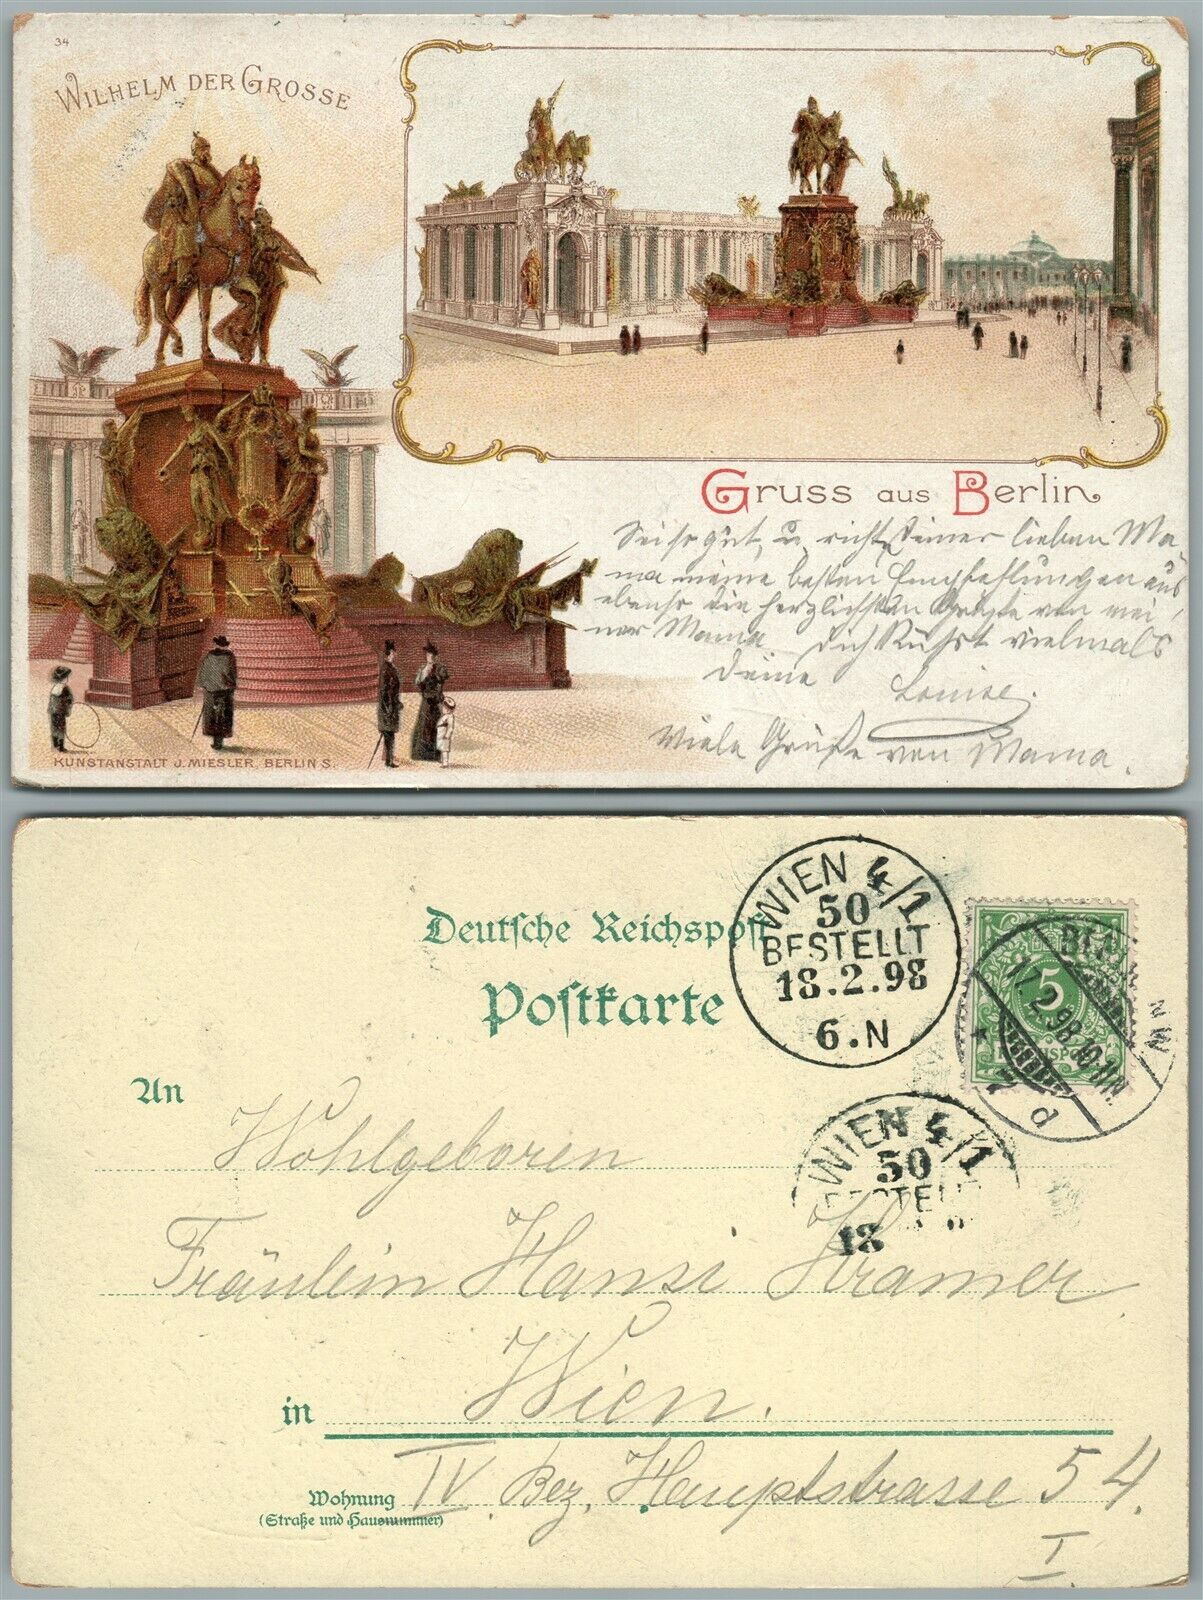 34
WILHELM DER GROSSE
GRUSS AUS BERLIN
Sei so gut, u. richte Deiner lieben Ma-
ma meine besten Empfehlungen aus
ebenso die herzlichsten Grüße von mei-
ner Mama. Dich küsst vielmals
Deine Louise.
Viele Grüße von Mama.
KUNSTANSTALT J. MIESLER, BERLIN S.
Deutsche Reichspost
Postkarte
WIEN 4/1
50
BESTELLT
18.2.98
6.N
5
REICHSPOST
17.2.98.10-11N.
d
WIEN 4/1
50
18
An Wohlgeboren
Fräulein Hansi Kramer
in Wien.
Wohnung IV Bez, Hauptstrasse 54.
(Straße und Hausnummer)
I